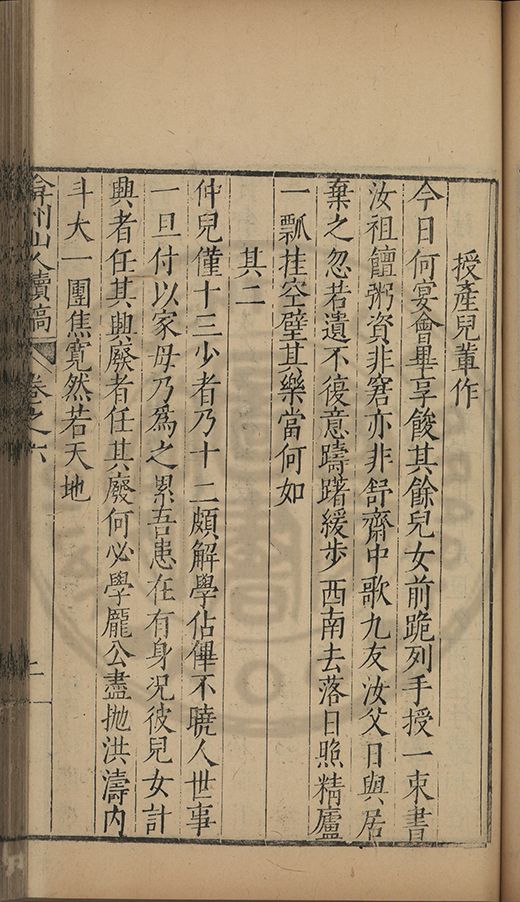 授產兒輩作
今日何宴會畢享餕其餘兒女前跪列手授一束書
汝祖饘粥資非窘亦非舒齋中歌九友汝父日與居
棄之忽若遺不復意躊躇緩步西南去落日照精廬
一瓢挂空壁其樂當何如
其二
仲兒僅十三少者乃十二頗解學佔俾不曉人世事
一旦付以家毋乃爲之累吾患在有身况彼兒女計
興者任其興廢者任其廢何必學龐公盡拋洪濤内
斗大一團焦寬然若天地
弇州山人續稿 卷之六 上